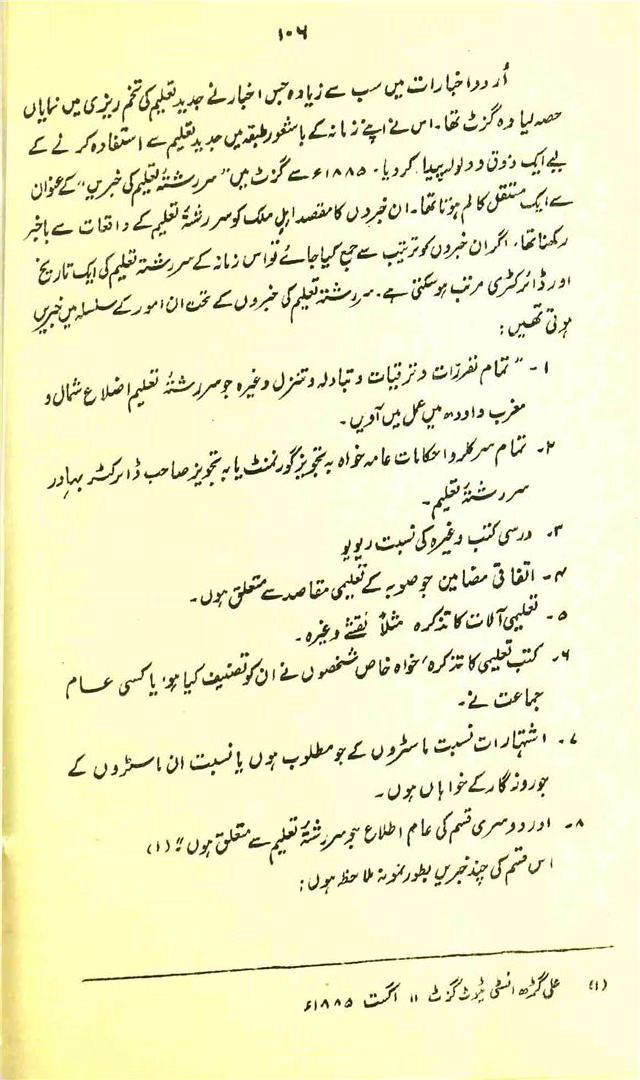 ۱۰۶
اُردو اخبارات میں سب سے زیادہ جس اخبار نے جدید تعلیم کی تخم ریزی میں نمایاں
حصہ لیا وہ گزٹ تھا۔ اس نے اپنے زمانہ کے باشعور طبقہ میں جدید تعلیم سے استفادہ کرنے کے
لیے ایک ذوق و ولولہ پیدا کر دیا۔ ۱۸۸۵ء سے گزٹ میں "سررشتۂ تعلیم کی خبریں" کے عنوان
سے ایک مستقل کالم ہوتا تھا۔ ان خبروں کا مقصد اہلِ ملک کو سررشتۂ تعلیم کے واقعات سے باخبر
رکھنا تھا۔ اگر ان خبروں کو ترتیب سے جمع کیا جائے تو اس زمانہ کے سررشتۂ تعلیم کی ایک تاریخ
اور ڈائرکٹری مرتب ہوسکتی ہے۔ سررشتۂ تعلیم کی خبروں کے تحت ان امور کے سلسلہ میں خبریں
ہوتی تھیں:
۱۔ "تمام تقررات و ترقیات و تبادلہ و تنزل وغیرہ جو سررشتۂ تعلیم اضلاع شمال و
مغرب و اودھ میں عمل میں آویں۔
۲۔ تمام سرکلر و احکامات عامہ خواہ بہ تجویز گورنمنٹ یا بہ تجویز صاحب ڈائرکٹر بہادر
سررشتۂ تعلیم۔
۳۔ درسی کتب وغیرہ کی نسبت ریویو
۴۔ اتفاقی مضامین جو صوبہ کے تعلیمی مقاصد سے متعلق ہوں۔
۵۔ تعلیمی آلات کا تذکرہ مثلاً نقشے وغیرہ۔
۶۔ کتب تعلیمی کا تذکرہ، خواہ خاص شخصوں نے ان کو تصنیف کیا ہو، یا کسی عام
جماعت نے۔
۷۔ اشتہارات نسبت ماسٹروں کے جو مطلوب ہوں یا نسبت ان ماسٹروں کے
جو روزگار کے خواہاں ہوں۔
۸۔ اور دوسری قسم کی عام اطلاع جو سررشتۂ تعلیم سے متعلق ہوں" (۱)
اس قسم کی چند خبریں بطور نمونہ ملاحظہ ہوں:
(۱) علی گڑھ انسٹی ٹیوٹ گزٹ ۱۱ اگست ۱۸۸۵ء